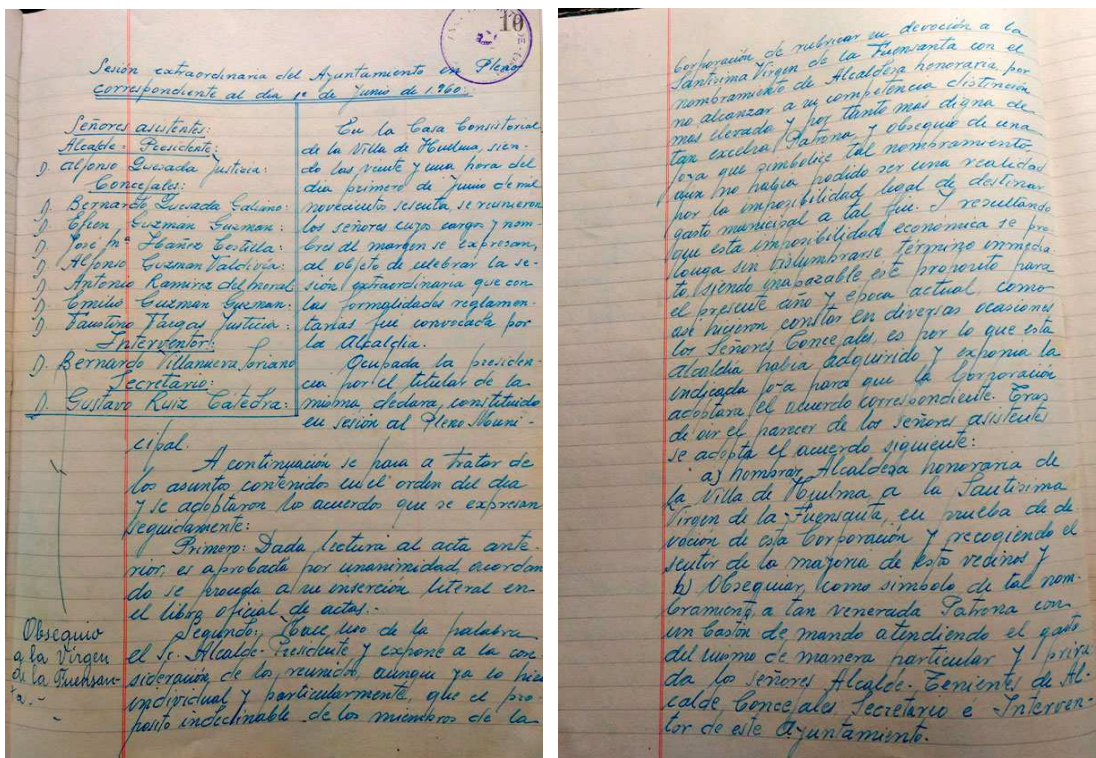 10
Sesión extraordinaria del Ayuntamiento en Pleno
correspondiente al dia 1º de Junio de 1.960.-
Señores asistentes:
Alcalde-Presidente:
D. Alfonso Quesada Justicia:
Concejales:
D. Bernardo Quesada Galiano:
D. Efren Guzman Guzman:
D. José Mª Ibañez Tostilla:
D. Alfonso Guzman Valdivia:
D. Antonio Ramirez del Moral
D. Emilio Guzman Guzman:
D. Faustino Vargas Justicia:
Interventor:
D. Bernardo Villanueva Soriano
Secretario:
D. Gustavo Ruiz Cátedra:
En la Casa Consistorial
de la Villa de Huelma, sien-
do las veinte y una hora del
dia primero de Junio de mil
novecientos sesenta, se reunieron
los señores cuyos cargos y nom-
bres al margen se expresan,
al objeto de celebrar la se-
sión extraordinaria que con
las formalidades reglamen-
tarias fué convocada por
la Alcaldia.
Ocupada la presiden-
cia por el titular de la
misma declara, constituido
en sesión al Pleno Muni-
cipal.
A continuación se pasa a tratar de
los asuntos contenidos en el orden del dia
y se adoptaron los acuerdos que se expresan
seguidamente:
Primero: Dada lectura al acta ante-
rior, es aprobada por unanimidad, acordan
do se proceda a su inserción literal en
el libro oficial de actas.-
Obsequio
a la Virgen
de la Fuensan-
ta.-
Segundo: Hace uso de la palabra
el Sr. Alcalde-Presidente y expone a la con
sideración de los reunidos, aunque ya lo hizo
individual y particularmente, que el pro-
posito indeclinable de los miembros de la
Corporación de rubricar su devoción a la
Santisima Virgen de la Fuensanta con el
nombramiento de Alcaldesa honoraria, por
no alcanzar a su competencia distinción
mas elevada y por tanto mas digna de
tan excelsa Patrona, y obsequio de una
joya que simbolice tal nombramiento,
aun no habia podido ser una realidad
por la imposibilidad legal de destinar
gasto municipal a tal fin. Y resultando
que esta imposibilidad económica se pro-
longa sin vislumbrarse término inmedia
to, siendo inaplazable este proposito para
el presente año y época actual, como
asi hicieron constar en diversas ocasiones
los Señores Concejales, es por lo que esta
Alcaldia habia adquirido y exponia la
indicada joya para que la Corporación
adoptara el acuerdo correspondiente. Tras
de oir el parecer de los señores asistentes
se adopta el acuerdo siguiente:
a) Nombrar Alcaldesa honoraria de
la Villa de Huelma, a la Santisima
Virgen de la Fuensanta, en prueba de de-
voción de esta Corporación y recogiendo el
sentir de la mayoria de esto vecinos y
b) Obsequiar, como simbolo de tal nom-
bramiento, a tan venerada Patrona con
un bastón de mando atendiendo el gasto
del mismo de manera particular y priva
da los señores Alcalde-Tenientes de Al-
calde, Concejales, Secretario e Interven-
tor de este Ayuntamiento.